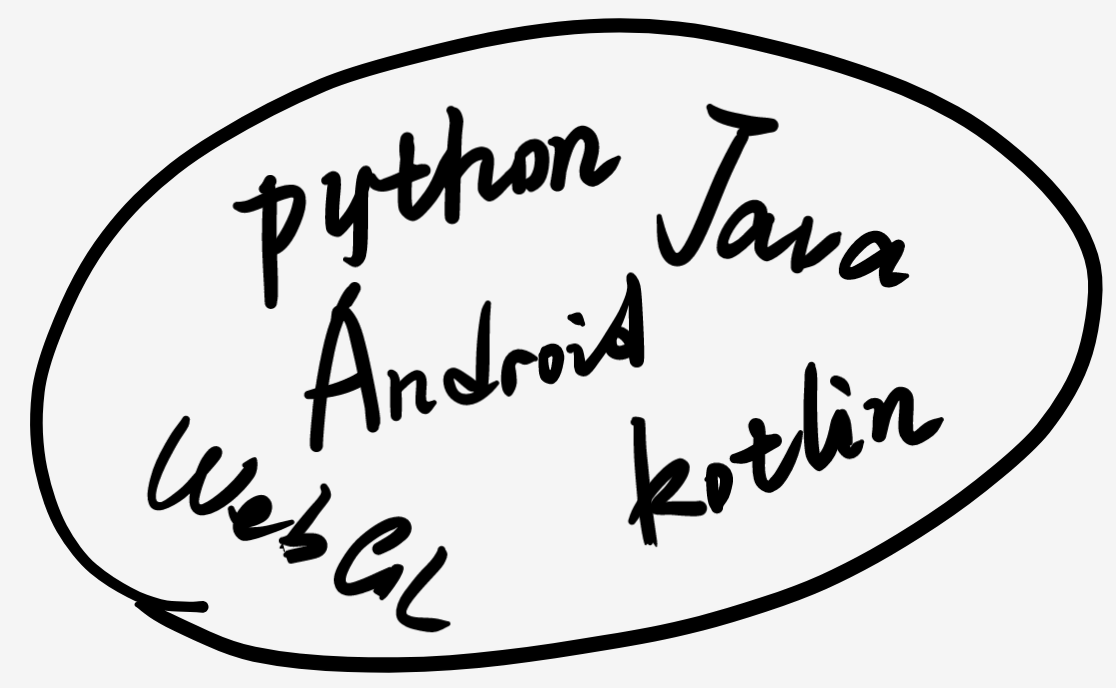 python
Java
Android
kotlin
WebGL